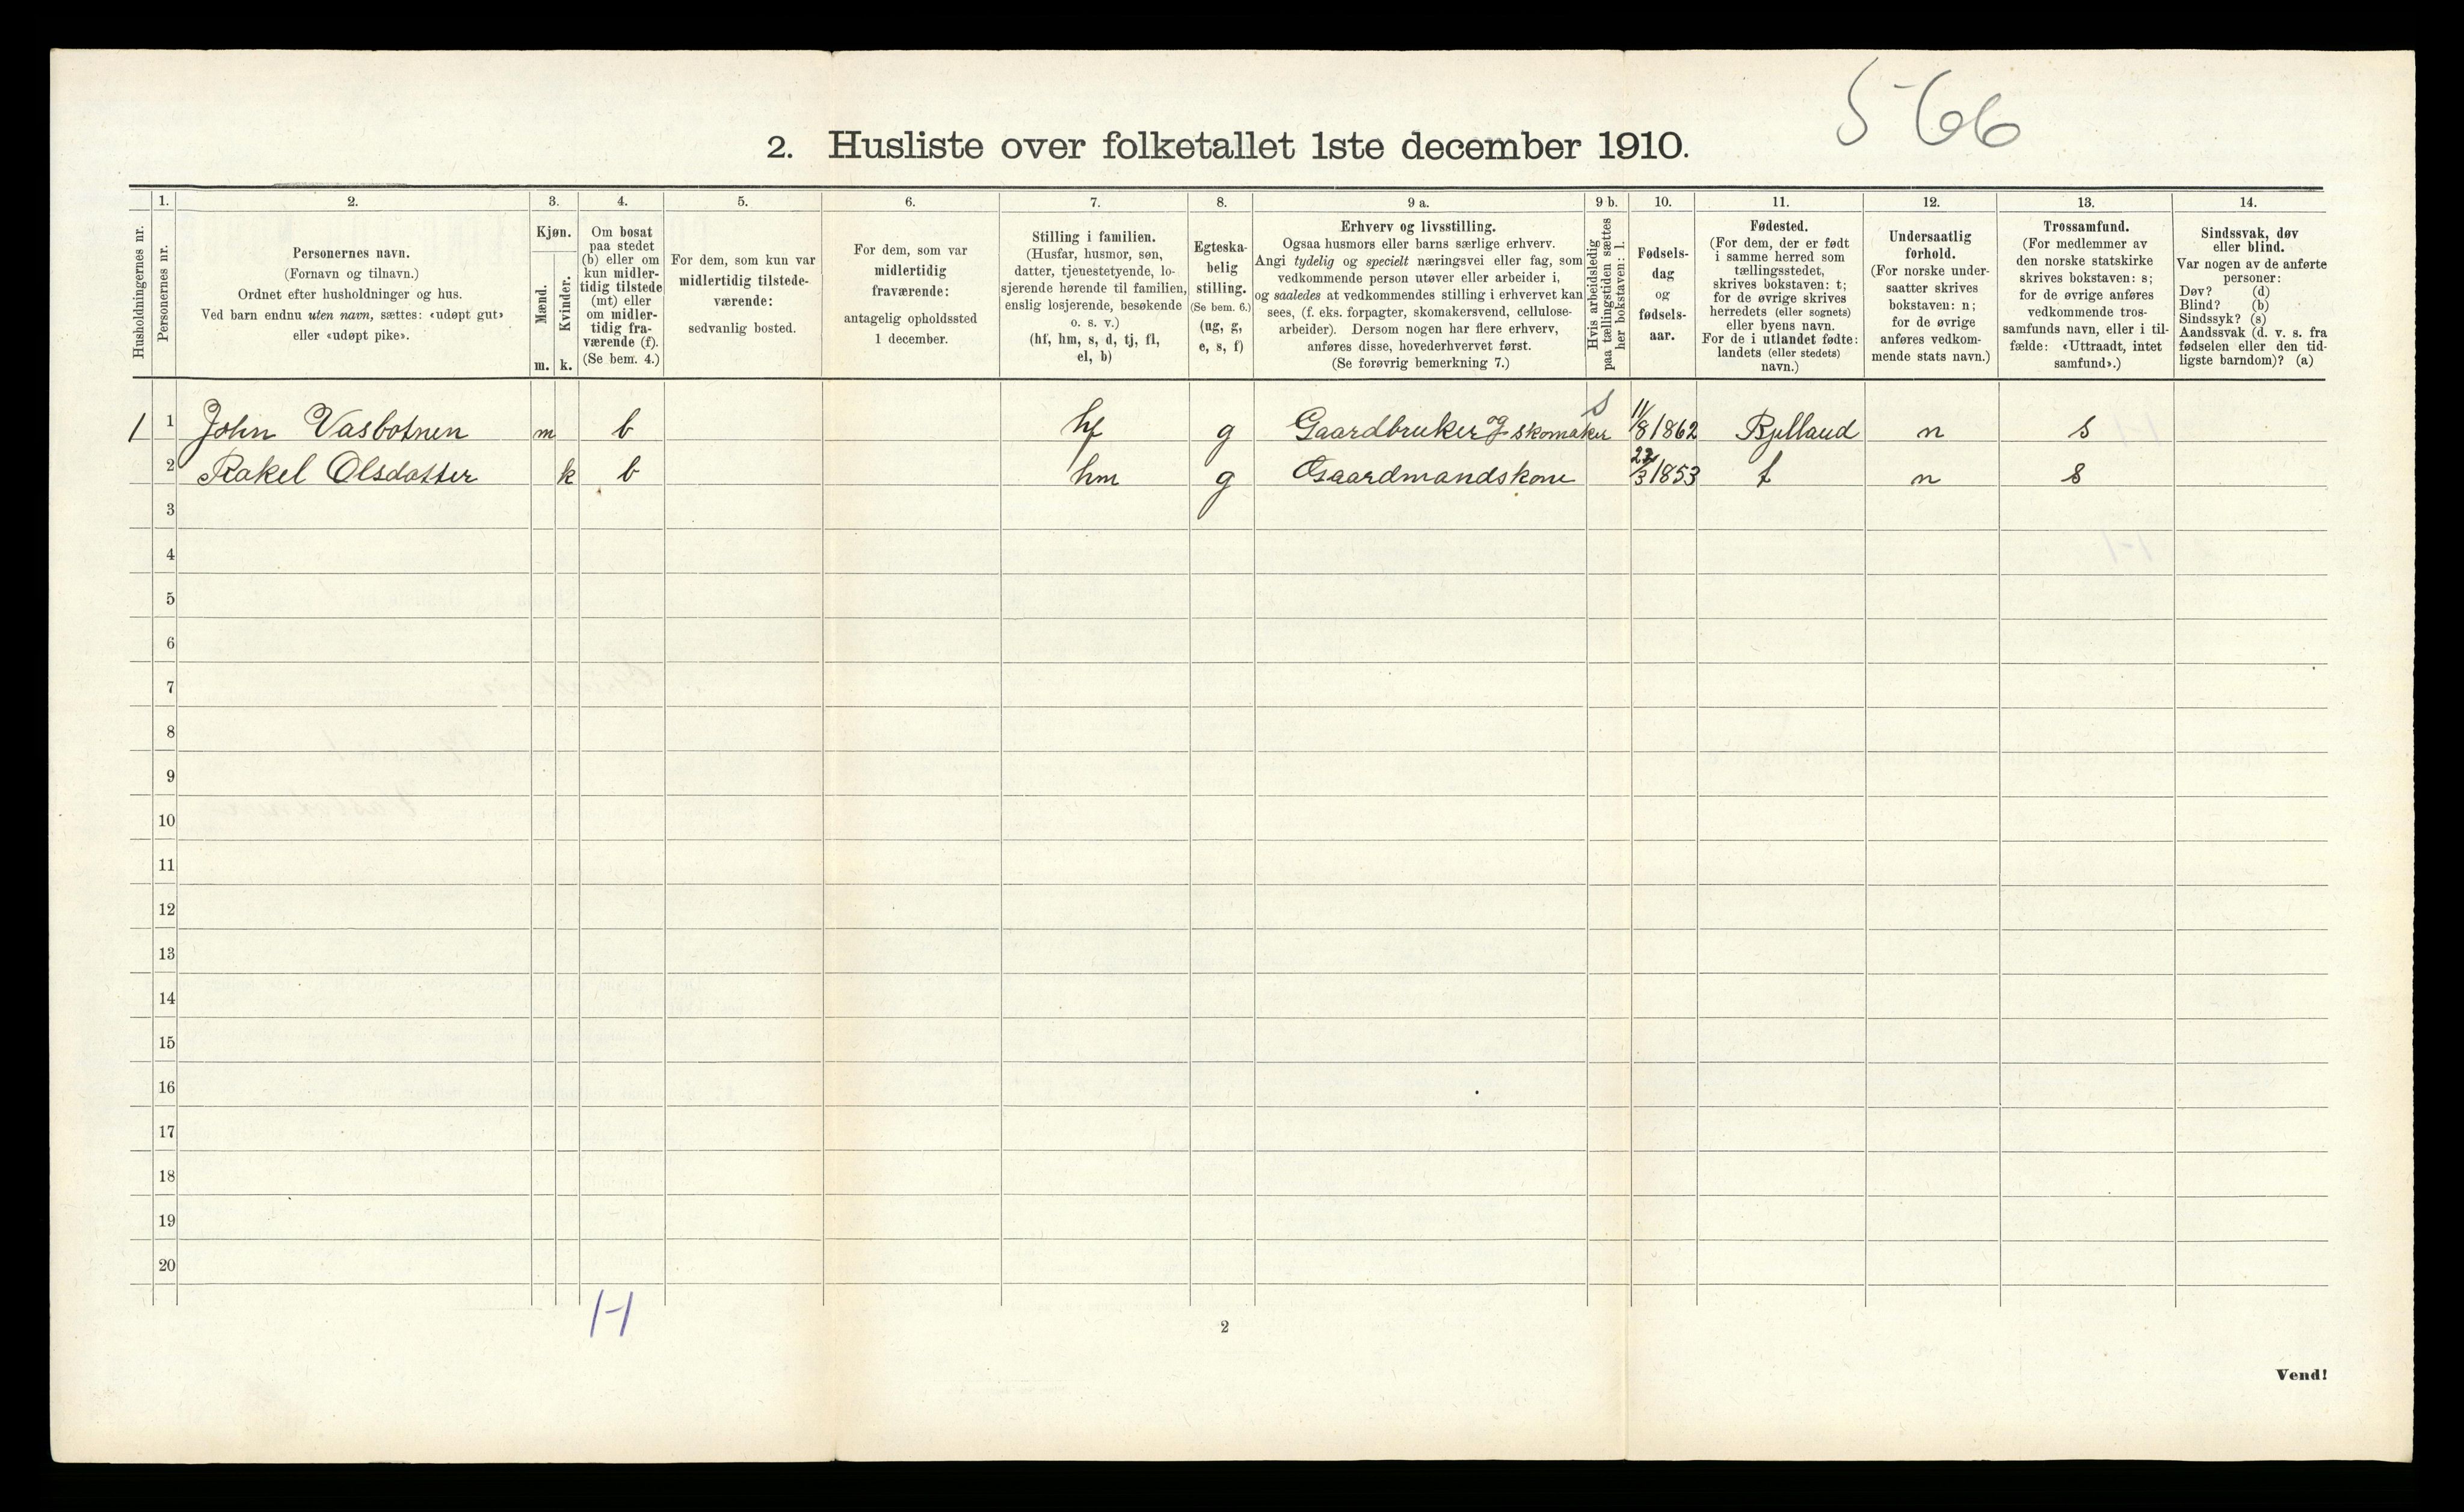 5-66
2. Husliste over folketallet 1ste december 1910.
Husholdningernes nr.
1.
Personernes nr.
2.
Personernes navn.
(Fornavn og tilnavn.)
Ordnet efter husholdninger og hus.
Ved barn endnu uten navn, sættes: «udøpt gut»
eller «udøpt pike».
3.
Kjøn.
Mænd.
Kvinder.
m. k.
4.
Om bosat
paa stedet
(b) eller om
kun midler-
tidig tilstede
(mt) eller
om midler-
tidig fra-
værende (f).
(Se bem. 4.)
5.
For dem, som kun var
midlertidig tilstede-
værende:
sedvanlig bosted.
6.
For dem, som var
midlertidig
fraværende:
antagelig opholdssted
1 december.
7.
Stilling i familien.
(Husfar, husmor, søn,
datter, tjenestetyende, lo-
sjerende hørende til familien,
enslig losjerende, besøkende
o. s. v.)
(hf, hm, s, d, tj, fl,
el, b)
8.
Egteska-
belig
stilling.
(Se bem. 6.)
(ug, g,
e, s, f)
9 a.
Erhverv og livsstilling.
Ogsaa husmors eller barns særlige erhverv.
Angi tydelig og specielt næringsvei eller fag, som
vedkommende person utøver eller arbeider i,
og saaledes at vedkommendes stilling i erhvervet kan
sees, (f. eks. forpagter, skomakersvend, cellulose-
arbeider). Dersom nogen har flere erhverv,
anføres disse, hovederhvervet først.
(Se forøvrig bemerkning 7.)
9 b.
Hvis arbeidsledig
paa tællingstiden sættes
her bokstaven: l.
10.
Fødsels-
dag
og
fødsels-
aar.
11.
Fødested.
(For dem, der er født
i samme herred som
tællingsstedet,
skrives bokstaven: t;
for de øvrige skrives
herredets (eller sognets)
eller byens navn.
For de i utlandet fødte:
landets (eller stedets)
navn.)
12.
Undersaatlig
forhold.
(For norske under-
saatter skrives
bokstaven: n;
for de øvrige
anføres vedkom-
mende stats navn.)
13.
Trossamfund.
(For medlemmer av
den norske statskirke
skrives bokstaven: s;
for de øvrige anføres
vedkommende tros-
samfunds navn, eller i til-
fælde: «Uttraadt, intet
samfund».)
14.
Sindssvak, døv
eller blind.
Var nogen av de anførte
personer:
Døv? (d)
Blind? (b)
Sindssyk? (s)
Aandssvak (d. v. s. fra
fødselen eller den tid-
ligste barndom)? (a)
1 1 John Vasbotnen m b hf g Gaardbruker og skomaker s 11/8 1862 Bjelland n s
2 Rakel Olsdatter k b hm g Gaardmandskone /3 1853 t n s
3
4
5
6
7
8
9
10
11
12
13
14
15
16
17
18
19
20
1-1
2
Vend!